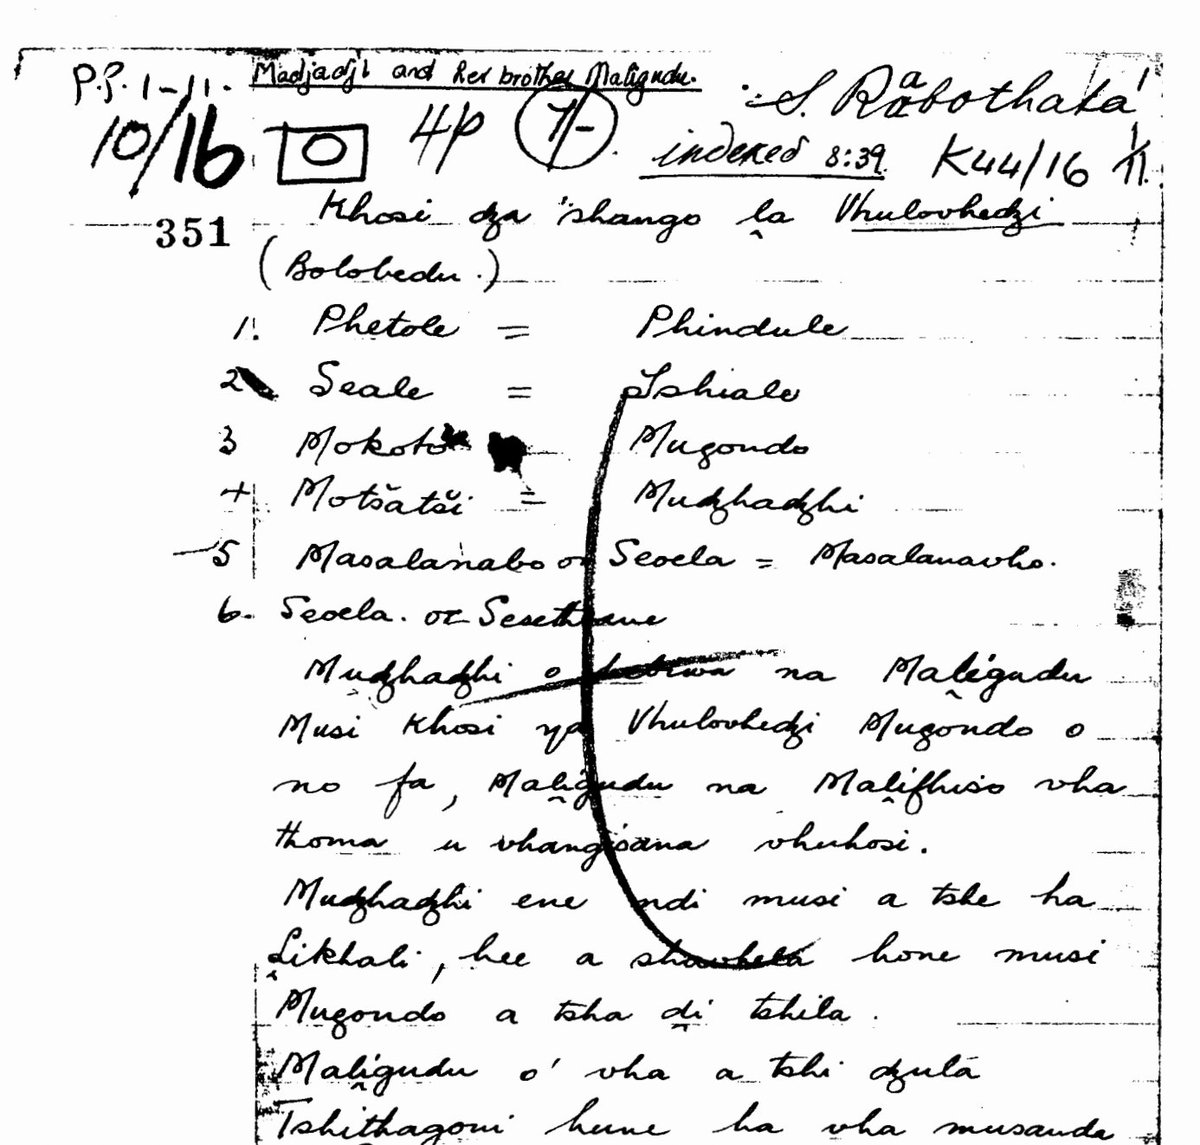 Madjadji and her brother Maligudu.
P.P. 1-11.
S. Rabothata
10/16 4p 7/- indexed 8:39. K44/16
351
Khosi dza 'shango ḽa Vhulovhedzi
(Bolobedu.)
1. Phetole = Phindule
2 Seale = Tshiale
3 Mokoto Mugondo
4 Motšatši = Mudzhadzhi
5 Masalanabo or Seoela = Masalanavho.
6. Seoela. or Sesethane
Mudzhadzhi o na Maḽigudu
Musi Khosi ya Vhulovhedzi Mugondo o
no fa, Maḽigudu na Maḽifhiso vha
thoma u vhangisana vhuhosi.
Mudzhadzhi ene ndi musi a tshe ha
Ḽikhali, hee a shavhela hone musi
Mugondo a tsha ḓi tshila.
Maḽigudu o' vha a tshi dzula
Tshithagoni hune ha vha musanda